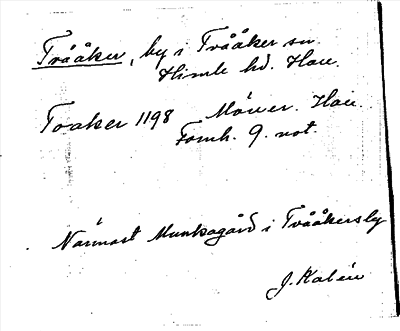 Tvååker, by i Tvååker sn.
Himle hd. Hall.
Toaker 1198 Möller. Hall.
Fornh. 9. not.
Närmast Munkagård i Tvååkersby
J. Kalén